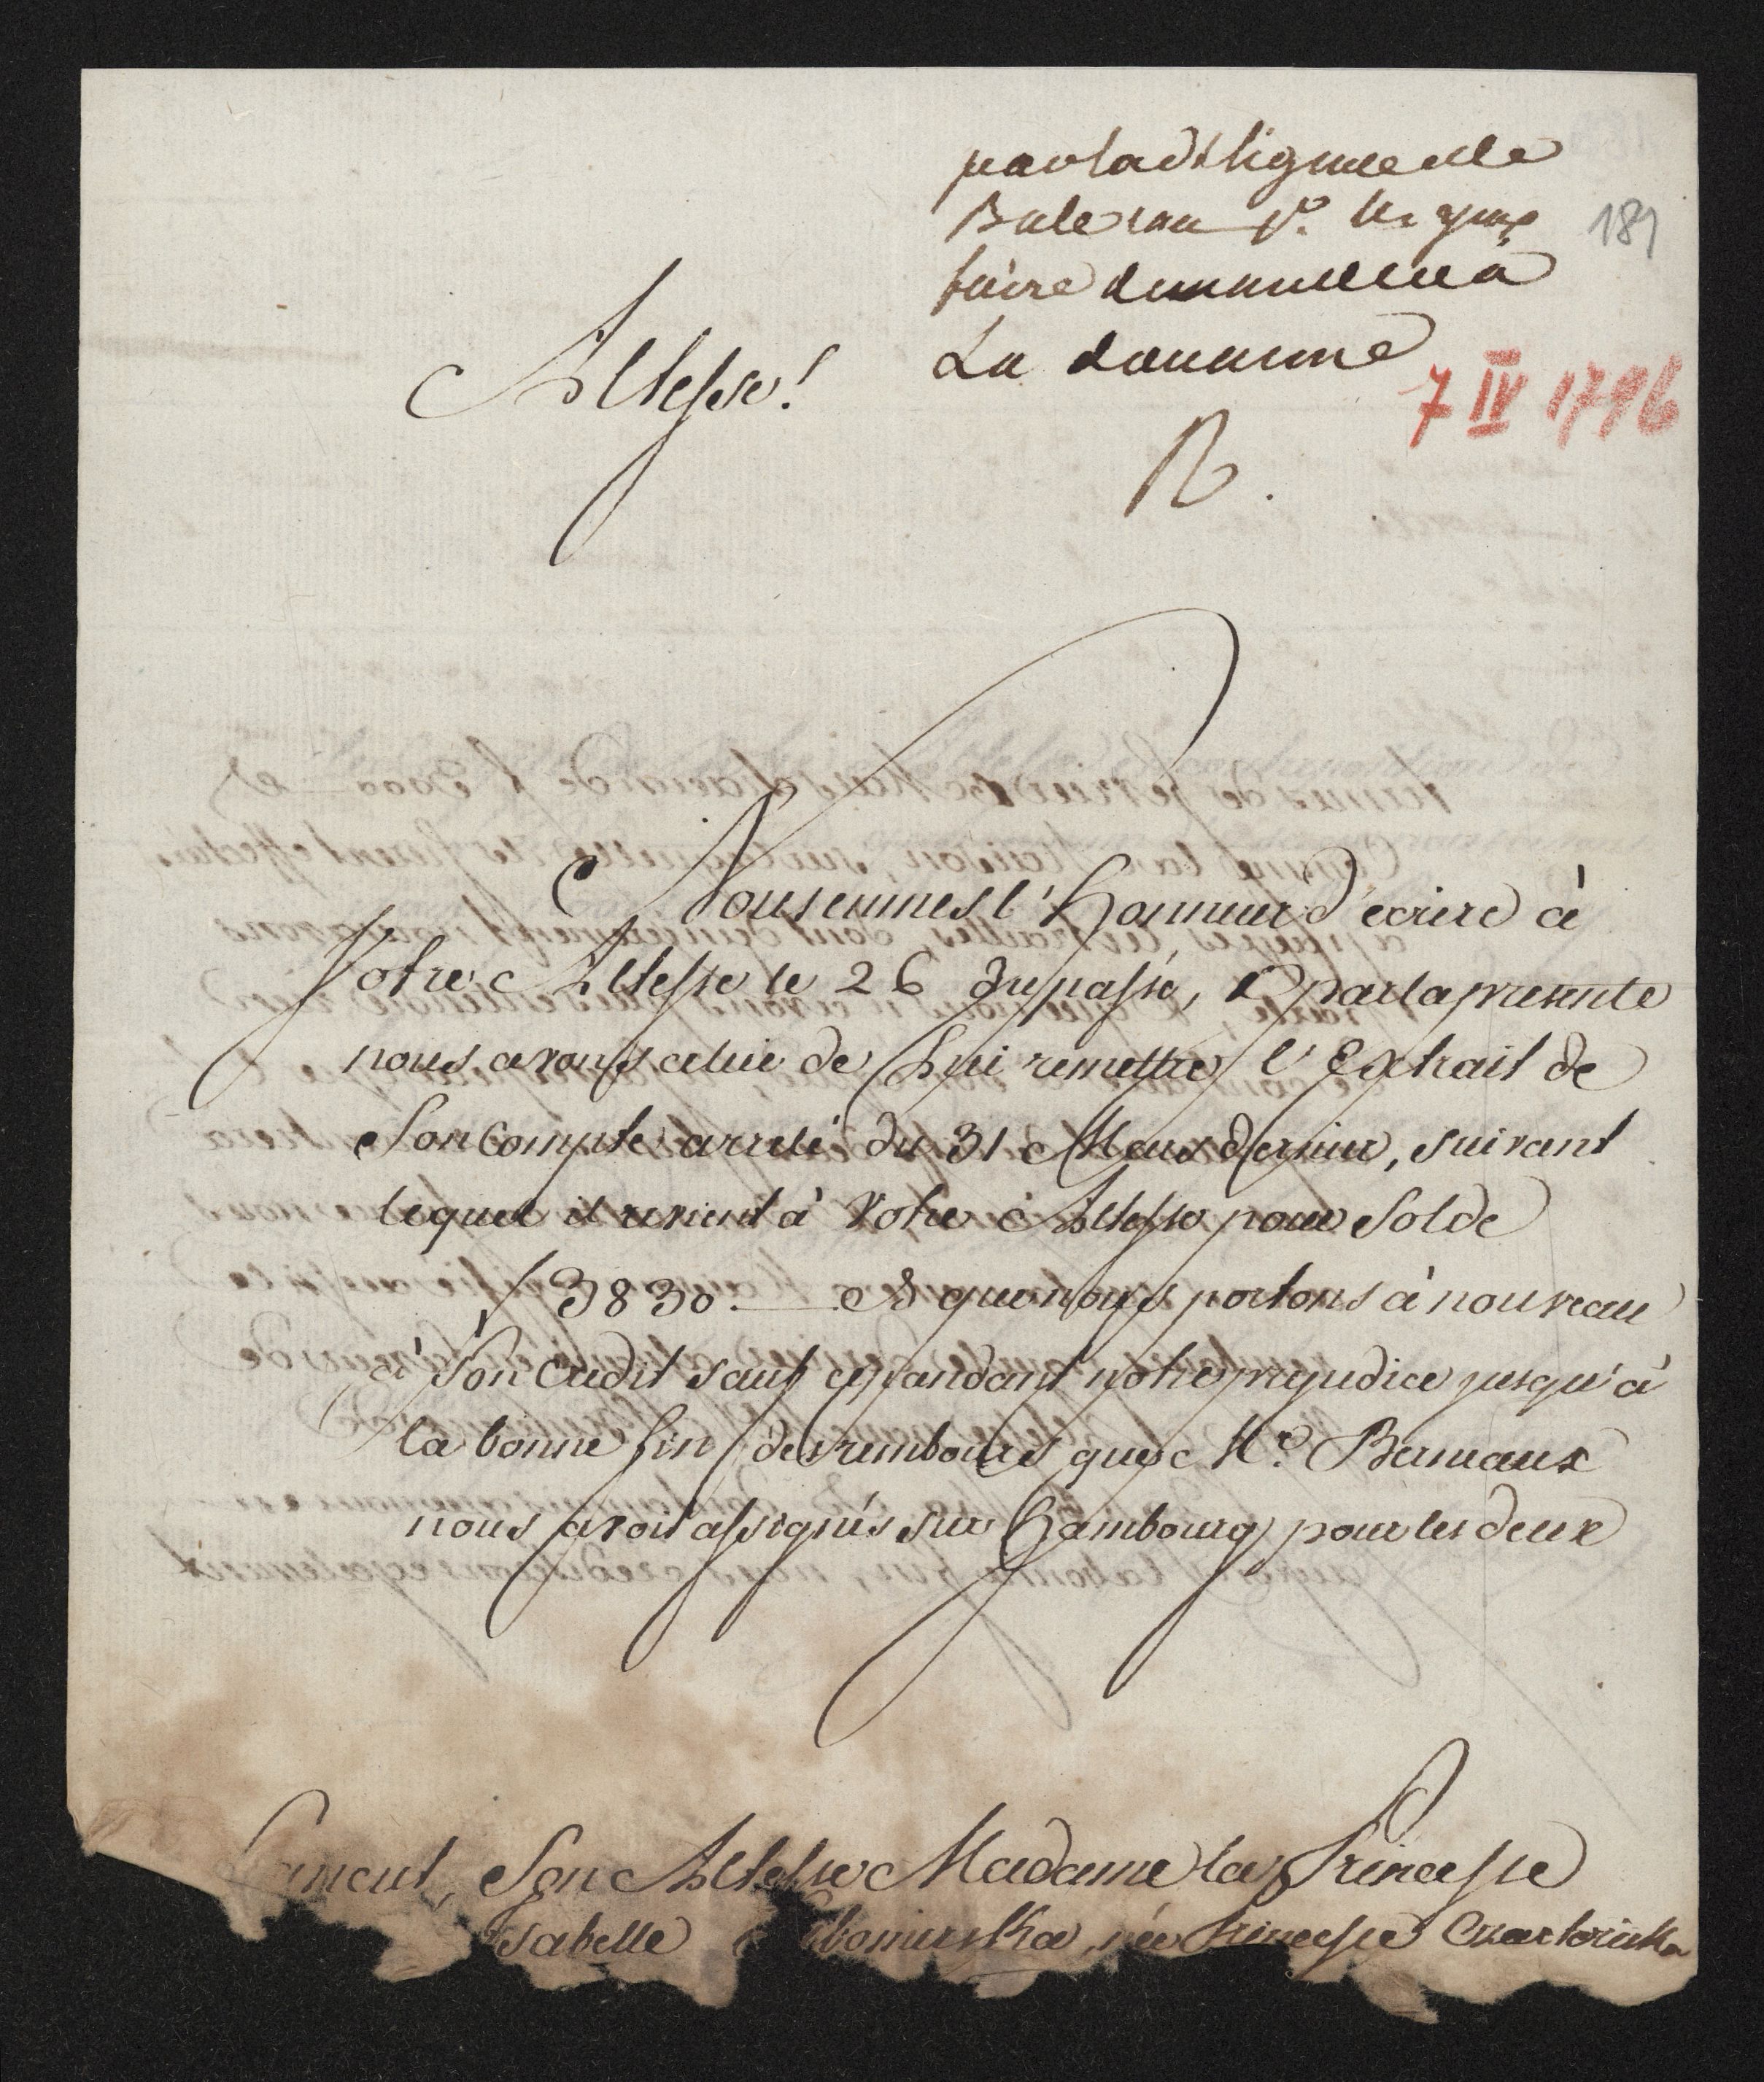 par la diligence de
faire
La douanne
R.
189
7 IV 1796
Altesse!
Nous eumes l'Honneur d'écrire à
Votre Altesse le 26 du passé, & par la presente
nous avons celui de Lui remettre l'Extrait de
Son Compte arreté du 31 Mars dernier, suivant
lequel il revient à Votre Altesse pour Solde
f 3830. — & que nous portons à nouveau
à Son Credit sauf cependant notre prejudice jusqu'à
la bonne fin des rembours que Mr. Berneaux
nous avoit assignés sur Hambourg pour les deux
Lancut, Son Altesse Madame la Princesse
Isabelle Lubomirska, née Princesse Czartoriska